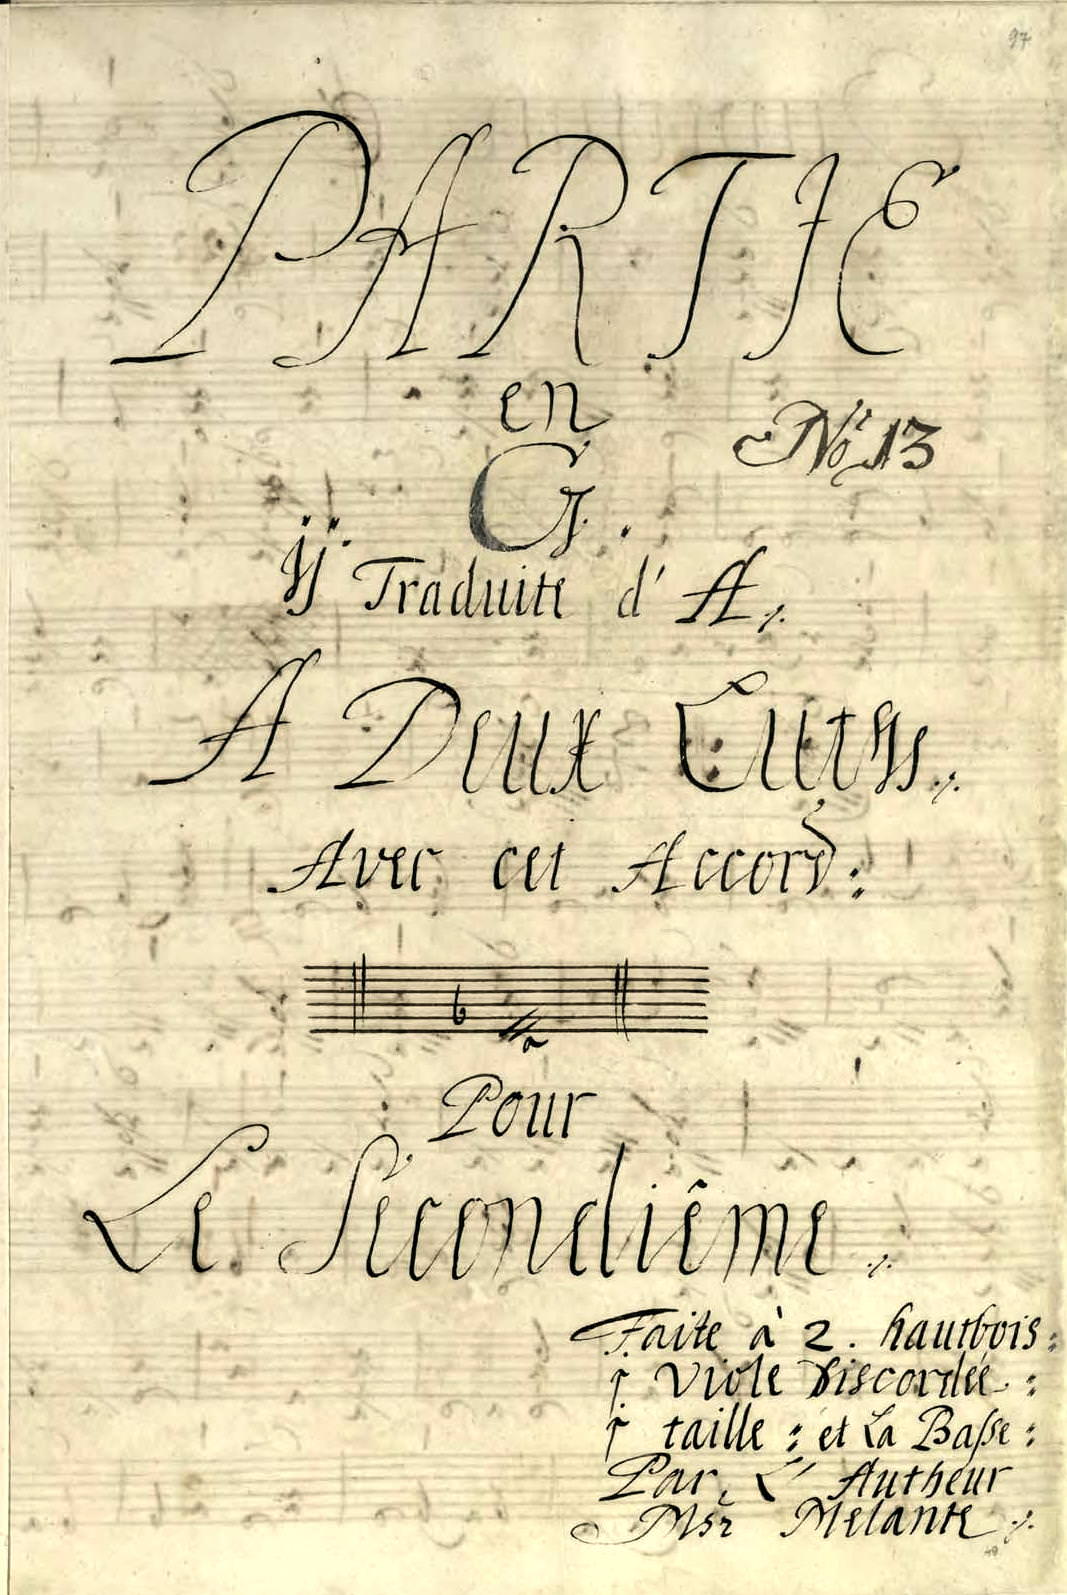 97
PARTIE
en
No. 13
G.
ÿ. Traduite d'A ⁒
A Deux Luths ⁒
Avec cet Accord:
b
///a
Pour
Le Secondiême ⁒
Faite à 2. hautbois:
1 Viole discordée:
1 taille: et La Baſse:
Par L'Autheur
Msr Melante ⁒